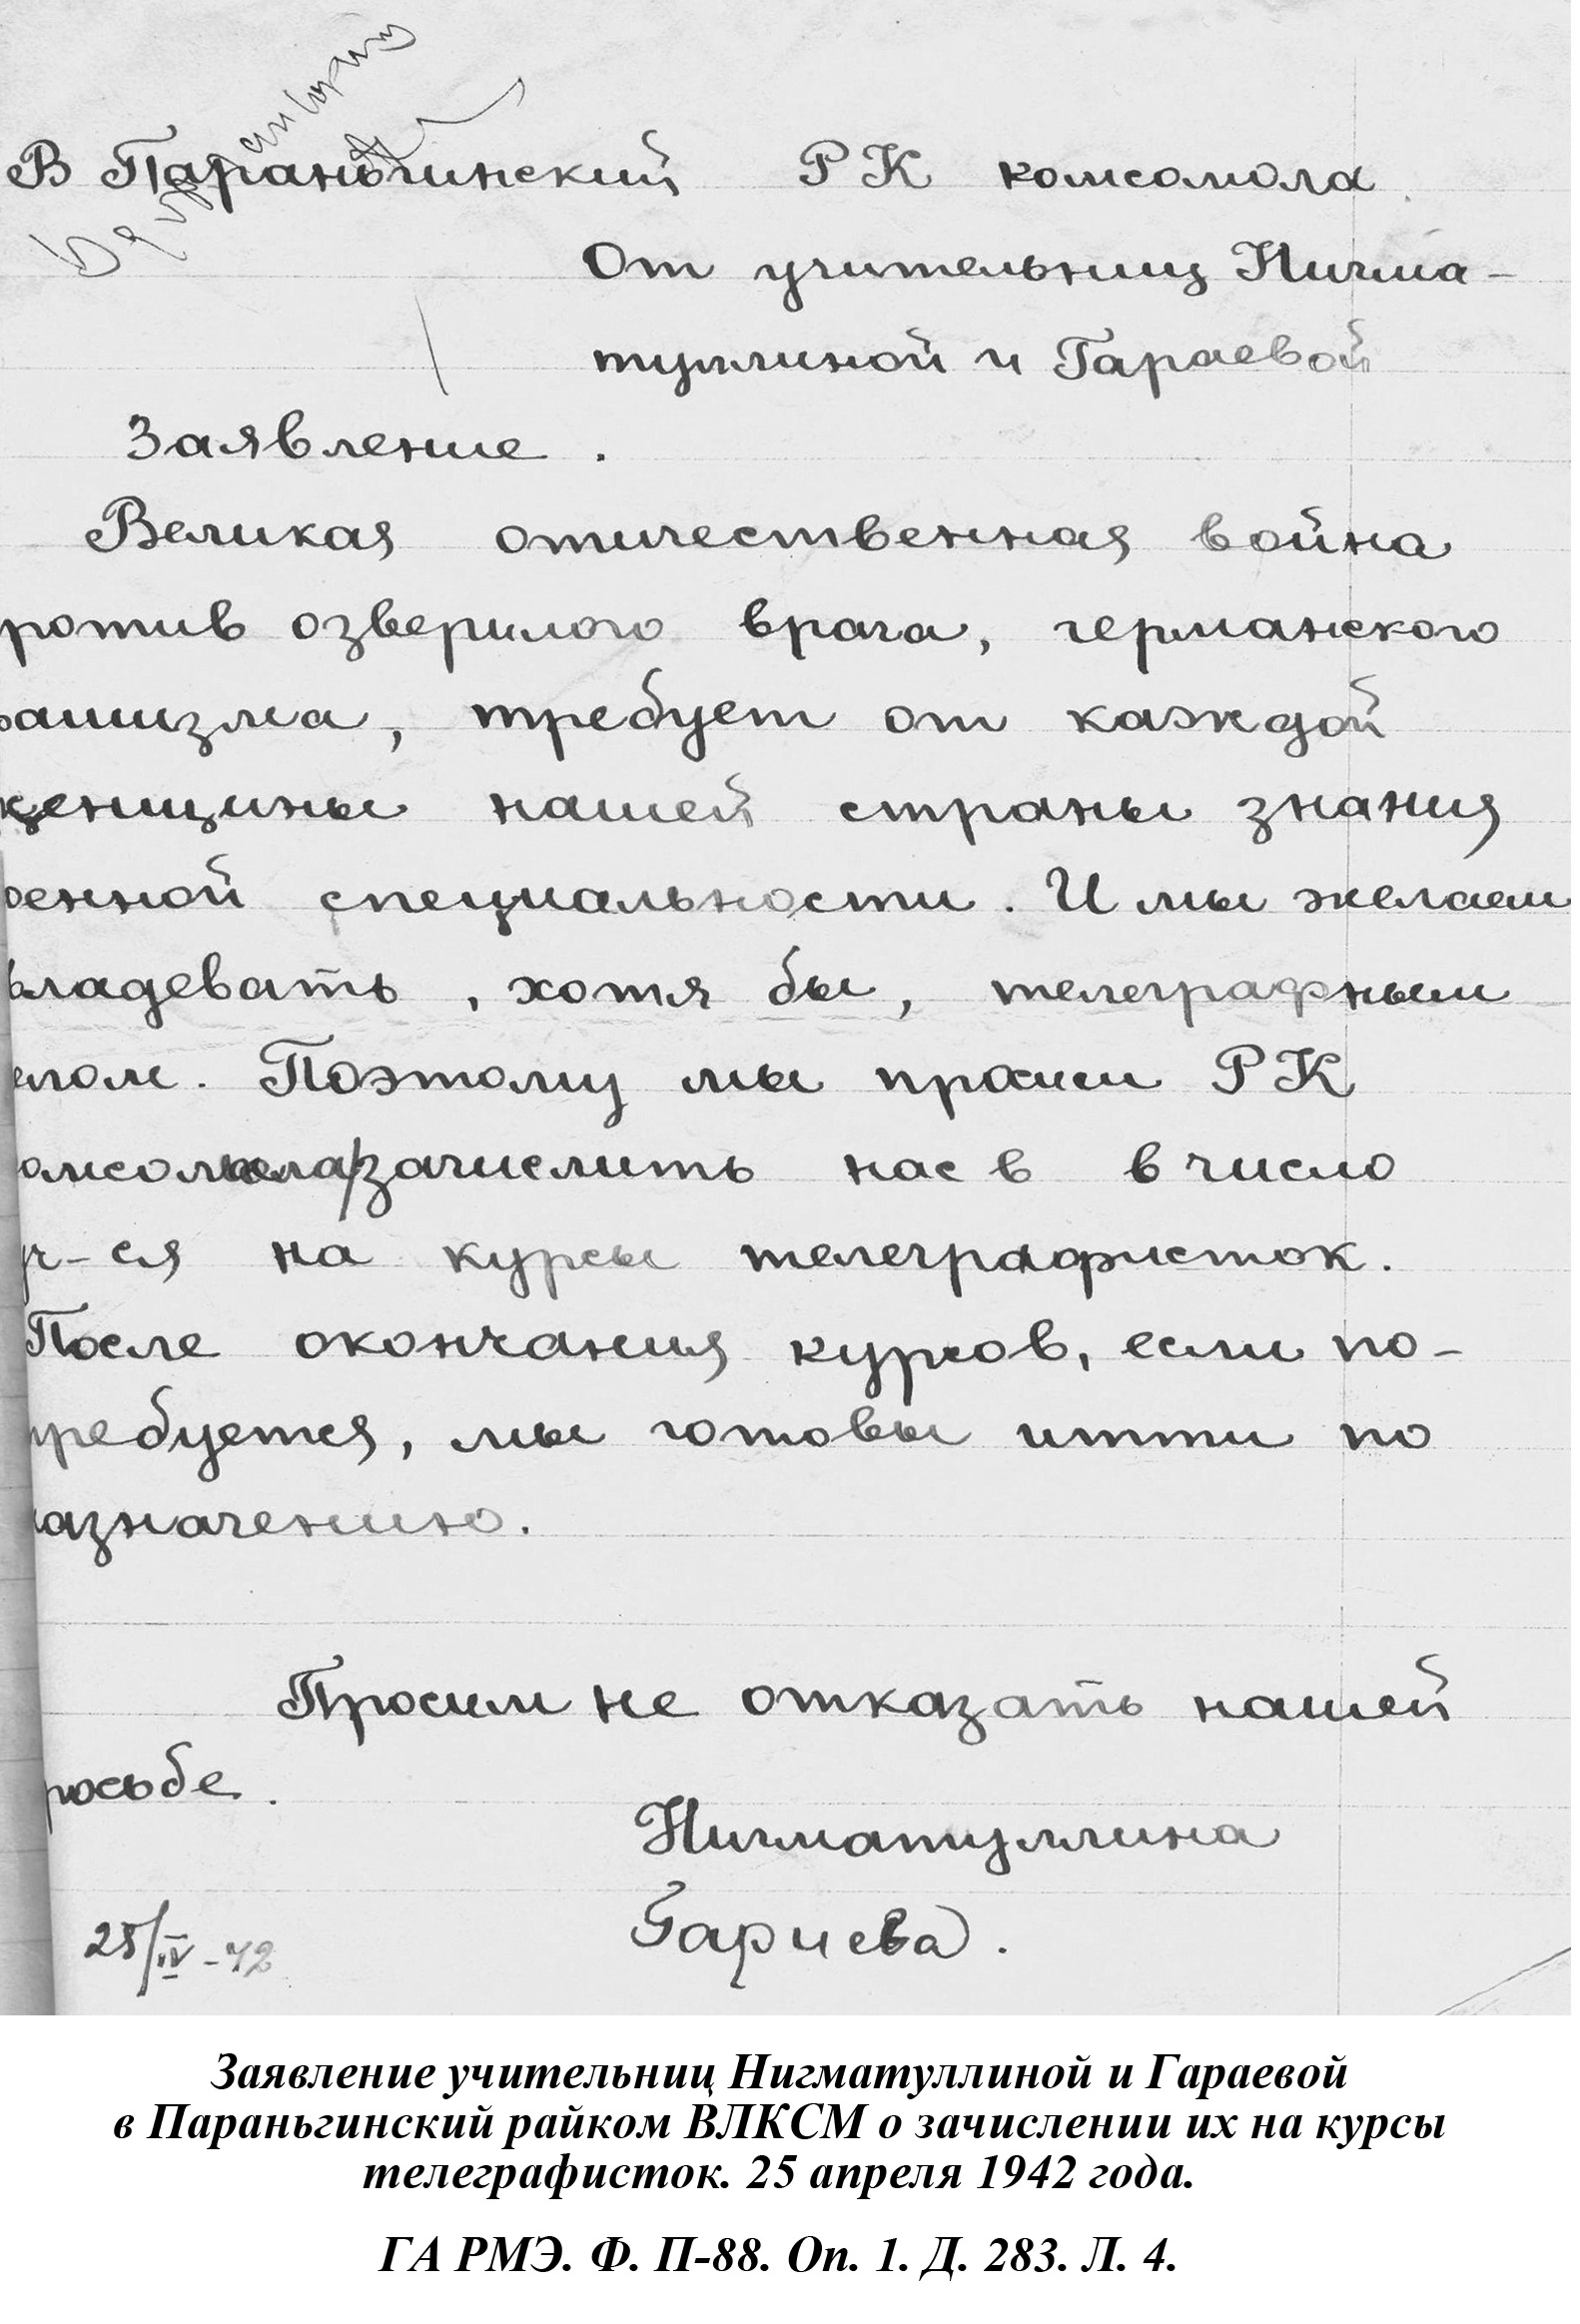 В Параньгинский РК комсомола.
От учительниц Нигма-
туллиной и Гараевой
Заявление.
Великая отичественная война
ротив озверилого врага, германского
ашизма, требует от каждой
женщины нашей страны знания
оенной специальности. И мы желаем
владевать, хотя бы, телеграфным
елом. Поэтому мы просим РК
омсомола зачислить нас в в число
уч-ся на курсы телеграфисток.
После окончания курсов, если по-
требуется, мы готовы итти по
назначению.
Просим не отказать нашей
росьбе.
Нигматуллина
Гариева.
25/IV-42
Заявление учительниц Нигматуллиной и Гараевой
в Параньгинский райком ВЛКСМ о зачислении их на курсы
телеграфисток. 25 апреля 1942 года.
ГА РМЭ. Ф. П-88. Оп. 1. Д. 283. Л. 4.